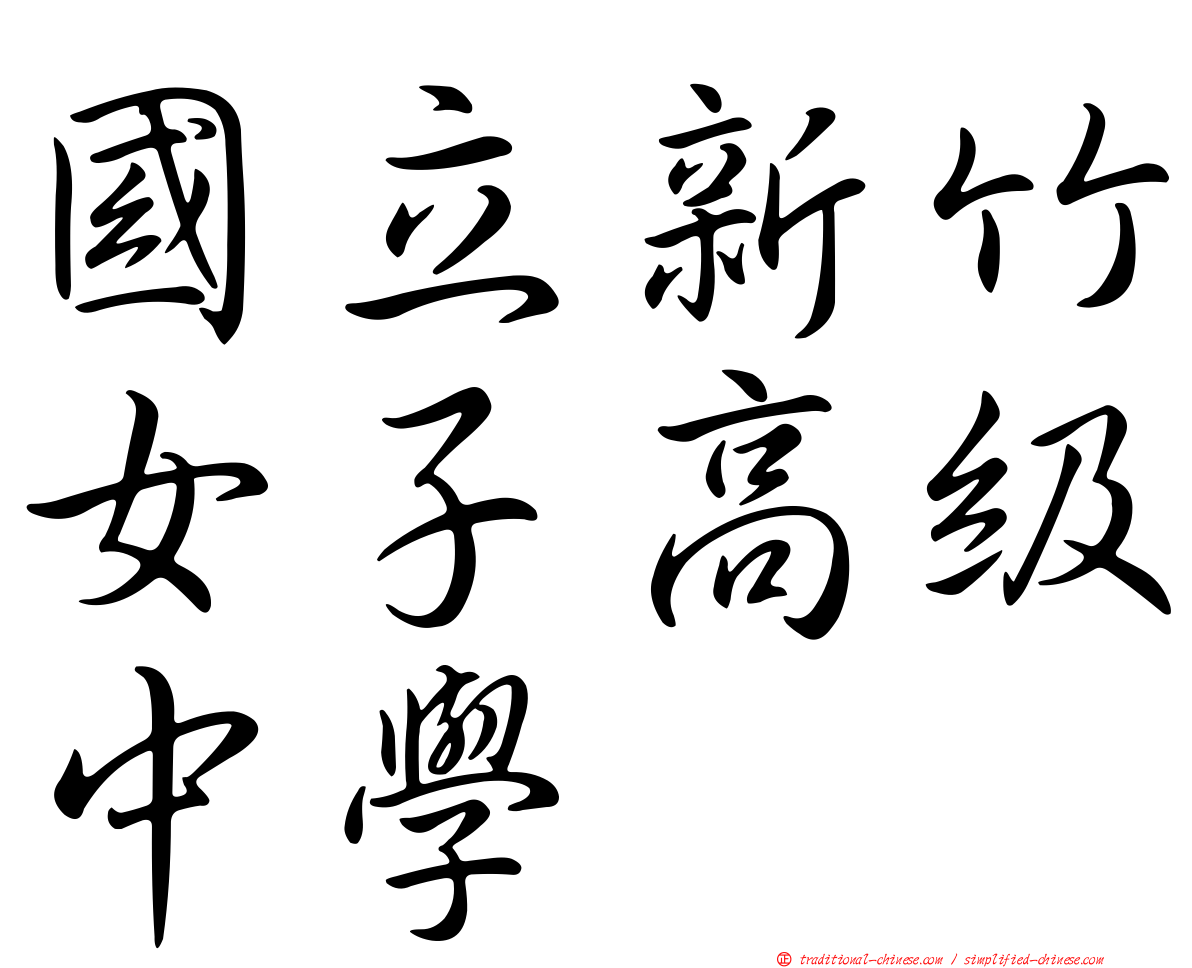 國立新竹
女子高級
中學
㊣ traditional-chinese.com / simplified-chinese.com